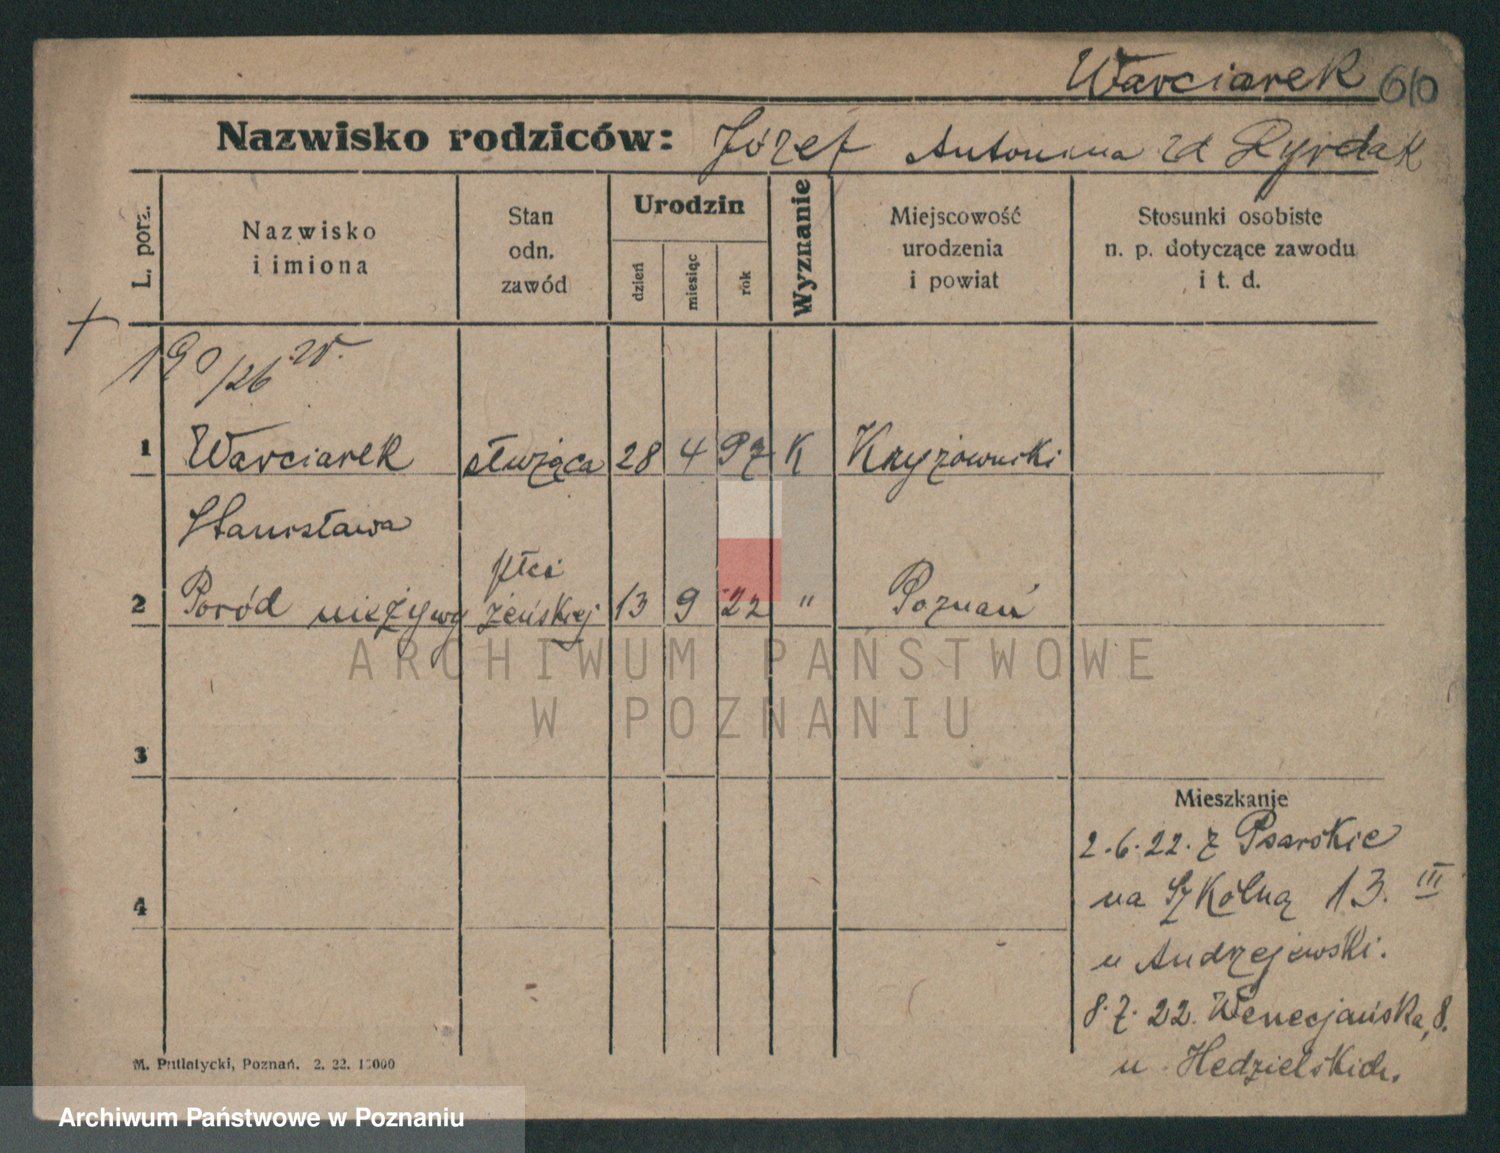 Warciarek 610
Nazwisko rodziców: Józef Antonina zd Ryrdak
L. porz.
Nazwisko
i imiona
Stan
odn.
zawód
Urodzin
dzień
miesiąc
rok
Wyznanie
Miejscowość
urodzenia
i powiat
Stosunki osobiste
n. p. dotyczące zawodu
i t. d.
190/26 20.
1 Warciarek służąca 28 4 97 K Kzyżowniki
Stanisława
płci
2 Poród nieżywy żeńskiej 13 9 22 " Poznań
ARCHIWUM PAŃSTWOWE
W POZNANIU
3
Mieszkanie
2.6.22. z Psarskie
4
na Szkólną 13. III
u Andrzejewski.
8.7.22. Wenecjańska 8.
u Hedzielskich.
M. Putiatycki, Poznań. 2. 22. 15000
Archiwum Państwowe w Poznaniu